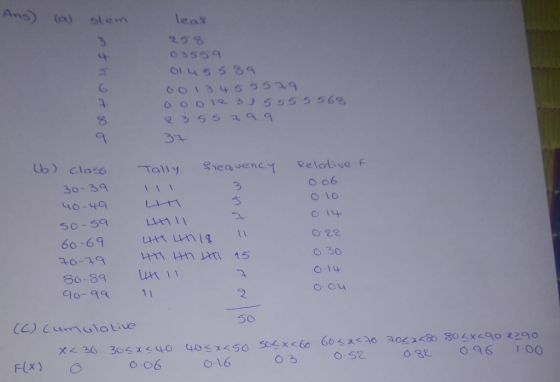 Ans) (a) stem leaf
3 258
4 03559
5 0145589
6 00134555 79
7 00012 3 5 5555568
8 2355799
9 37
(b) class Tally frequency Relative F
30-39 III 3 0.06
40-49 5 0.10
50-59 7 0.14
60-69 11 0.22
70-79 15 0.30
80-89 7 0.14
90-99 II 2 0.04
50
(C) Cumulative
x<30 30≤x≤40 40≤x<50 50≤x<60 60≤x<70 70≤x<80 80≤x<90 x≥90
F(x) 0 0.06 0.16 0.3 0.52 0.82 0.96 1.00